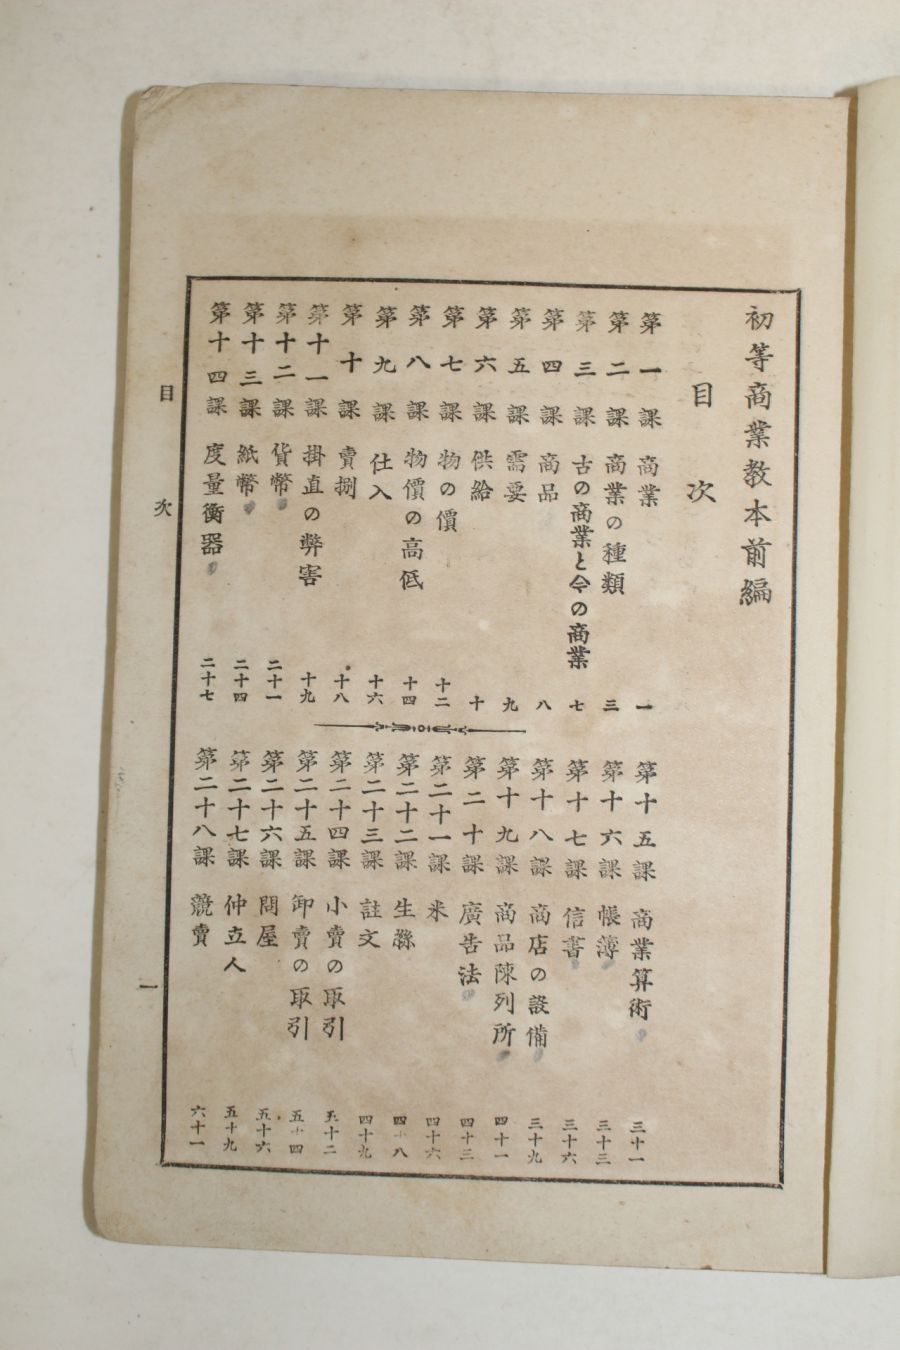 初等商業教本前編
目次
第一課 商業 一
第二課 商業の種類 三
第三課 古の商業と今の商業 七
第四課 商品 八
第五課 需要 九
第六課 供給 十
第七課 物の價 十二
第八課 物價の高低 十四
第九課 仕入 十六
第十課 賣捌 十八
第十一課 掛直の弊害 十九
第十二課 貨幣 二十一
第十三課 紙幣 二十四
第十四課 度量衡器 二十七
第十五課 商業算術 三十一
第十六課 帳簿 三十三
第十七課 信書 三十六
第十八課 商店の設備 三十九
第十九課 商品陳列所 四十一
第二十課 廣告法 四十三
第二十一課 米 四十六
第二十二課 生繇 四十八
第二十三課 註文 四十九
第二十四課 小賣の取引 五十二
第二十五課 卸賣の取引 五十四
第二十六課 問屋 五十六
第二十七課 仲立人 五十九
第二十八課 競賣 六十一
目次 一